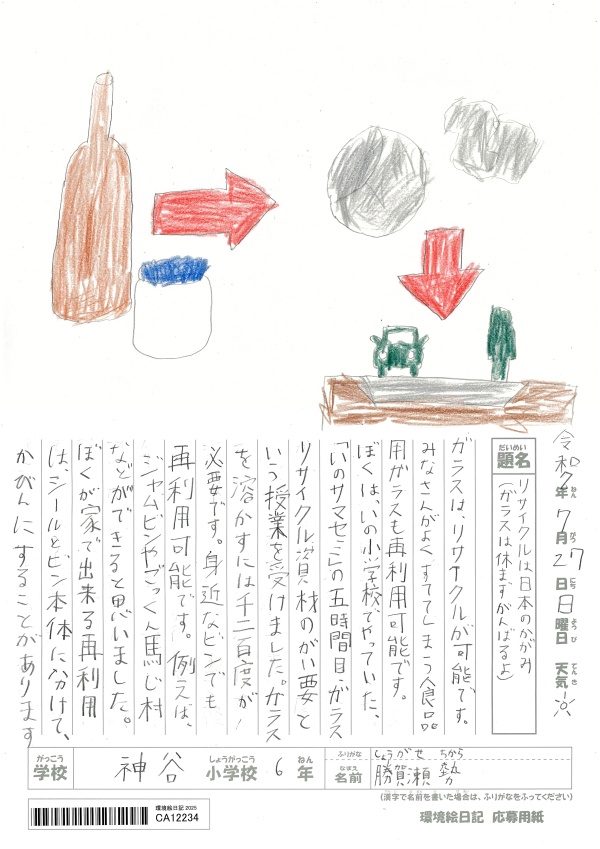 令和7年7月27日日曜日 天気
ねん
がつ
にち
ようび
てんき
だいめい
題名
リサイクルは日本のかがみ
(ガラスは休まずがんばるよ)
ガラスは、リサイクルが可能です。
みなさんがよくすててしまう食品
用ガラスも再利用可能です。
ぼくは、いの小学校でやっていた、
「いのサマセミ」の五時間目、ガラス
リサイクル資材のがい要と
いう授業を受けました。ガラス
を溶かすには千二百度が
必要です。身近なビンでも
再利用可能です。例えば、
ジャムビンやごっくん馬じ村
などができると思いました。
ぼくが家で出来る再利用
は、シールとビン本体に分けて、
かびんにすることがあります
がっこう
学校
神谷
しょうがっこう
小学校
6
ねん
年
ふりがな
しょうがせ ちから
なまえ
名前
勝賀瀬 勢
(漢字で名前を書いた場合は、ふりがなをふってください)
環境絵日記 2025
CA12234
環境絵日記 応募用紙